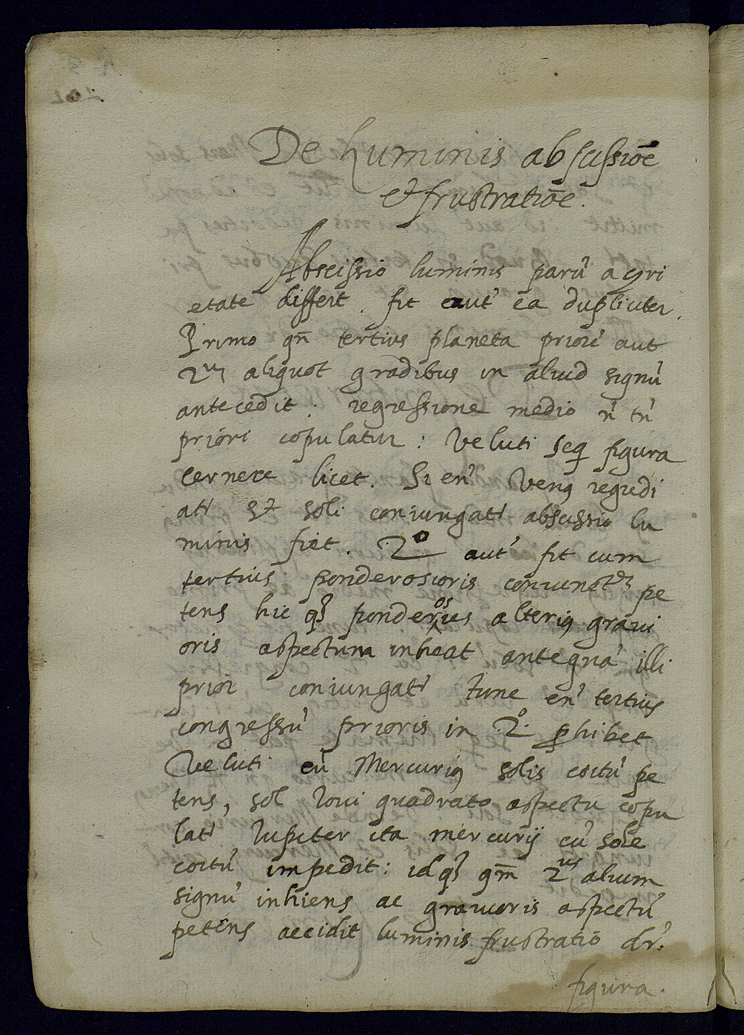 De Luminis abscissioē
et frustratiōe.
Abscissio luminis parū a cori
etate differt. fit aut̄ ea dupliciter.
Primo qn̄ tertius planeta priorē aut
2ᵘᵐ aliquot gradibus in aliud signū
antecedit: regressione medio n̄ tn̄
priori copulatur: Veluti seq̄ figura
cernere licet. Si en̄ Venꝰ regredi
at̄ et soli coniungat̄ abscissio lu
minis fiet. 2° aut̄ fit cum
tertius ponderosioris coniunct
pe
tens hic qꝫ ponderosus alteriꝰ gravi
oris aspectum inheat antequā illi
prior coniungat̄ tunc en̄ tertius
congressū prioris in 2° ꝓhibet
Veluti cū Mercuriꝰ solis coitū pe
tens, sol Iovi quadrato aspectu copu
lat̄ Iupiter ita mercurij cū sole
coitū impedit: idqꝫ qm̄ 2ᵘˢ alium
signū inhiens ac gravioris aspectū
petens accidit luminis frustratio dr̄.
figura.